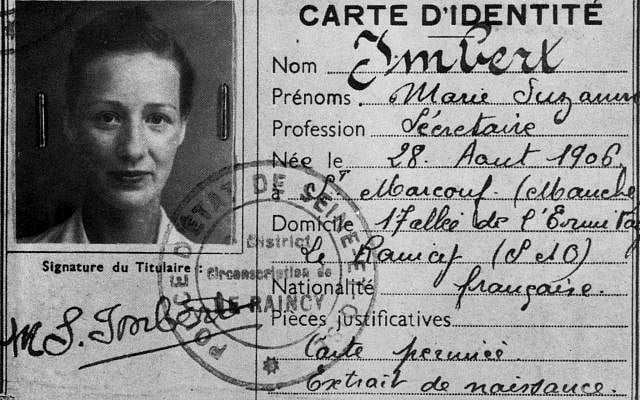 CARTE D'IDENTITÉ
Nom Imbert
Prénoms Marie Suzanne
Profession Sécretaire
Née le 28. Aout 1906.
à St Marcouf. (Manche
Domicile 17 allée de l'Ermitag
Le Raincy (S & O)
Nationalité française.
Pièces justificatives
Carte
Extrait de naissance.
Signature du Titulaire :
M S. Imbert
POLICE D'ETAT DE SEINE ET OISE
District
Circonscription de
LE RAINCY